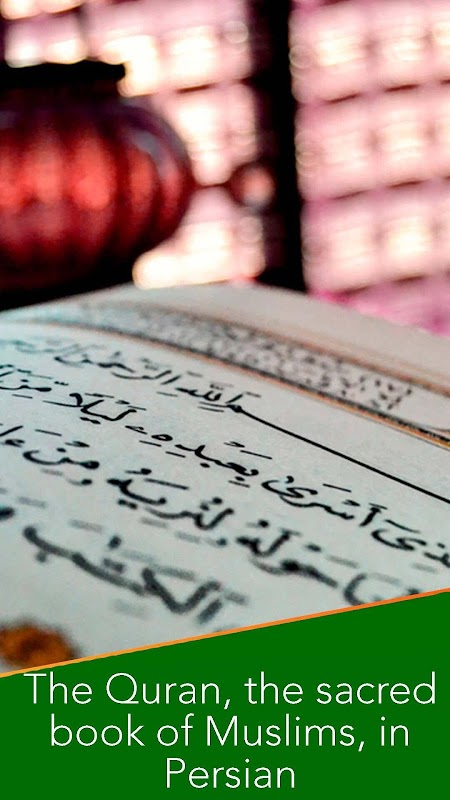 ٱللَّهِ ٱلرَّحْمَٰنِ
أَسْرَىٰ بِعَبْدِهِۦ لَيْلًا مِّنَ
حَوْلَهُۥ لِنُرِيَهُۥ مِنْ
ٱلْكِتَٰبَ
The Quran, the sacred
book of Muslims, in
Persian